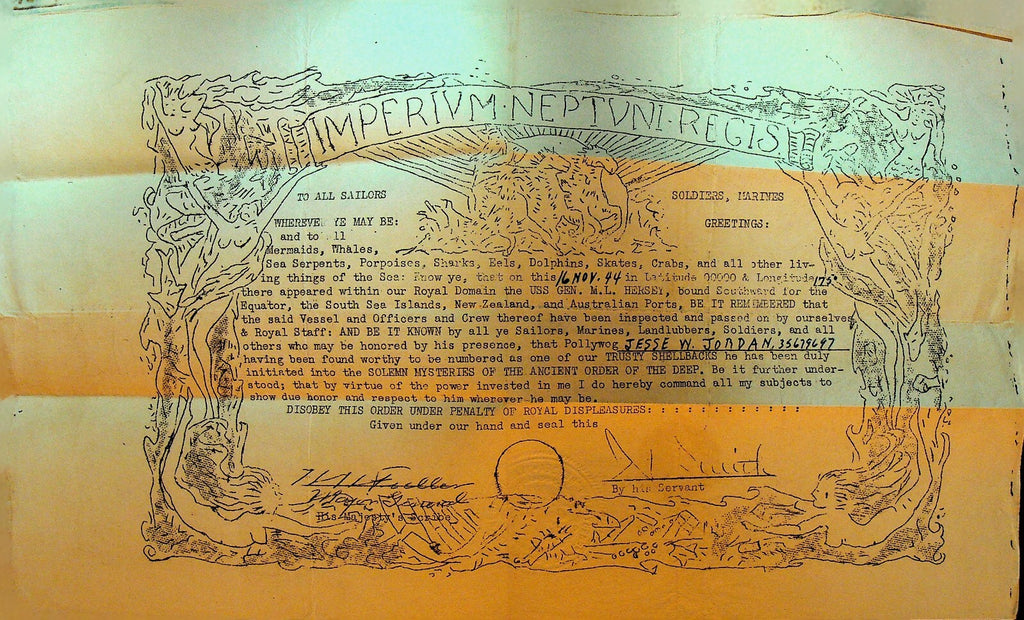 IMPERIVM·NEPTVNI·REGIS
TO ALL SAILORS SOLDIERS, MARINES
WHEREVER YE MAY BE: GREETINGS:
and to all
Mermaids, Whales,
Sea Serpents, Porpoises, Sharks, Eels, Dolphins, Skates, Crabs, and all other liv-
ing things of the Sea: Know ye, that on this 16 NOV. 44 in Latitude 00000 & Longitude 175°
there appeared within our Royal Domain the USS GEN. M.L. HERSEY, bound Southward for the
Equator, the South Sea Islands, New Zealand, and Australian Ports, BE IT REMEMBERED that
the said Vessel and Officers and Crew thereof have been inspected and passed on by ourselves
& Royal Staff: AND BE IT KNOWN by all ye Sailors, Marines, Landlubbers, Soldiers, and all
others who may be honored by his presence, that Pollywog JESSE W. JORDAN, 35679697
having been found worthy to be numbered as one of our TRUSTY SHELLBACKS he has been duly
initiated into the SOLEMN MYSTERIES OF THE ANCIENT ORDER OF THE DEEP. Be it further under-
stood; that by virtue of the power invested in me I do hereby command all my subjects to
show due honor and respect to him wherever he may be.
DISOBEY THIS ORDER UNDER PENALTY OF ROYAL DISPLEASURES: : : : : : : : : : : :
Given under our hand and seal this
Smith
By his Servant
His Majesty's Scribe